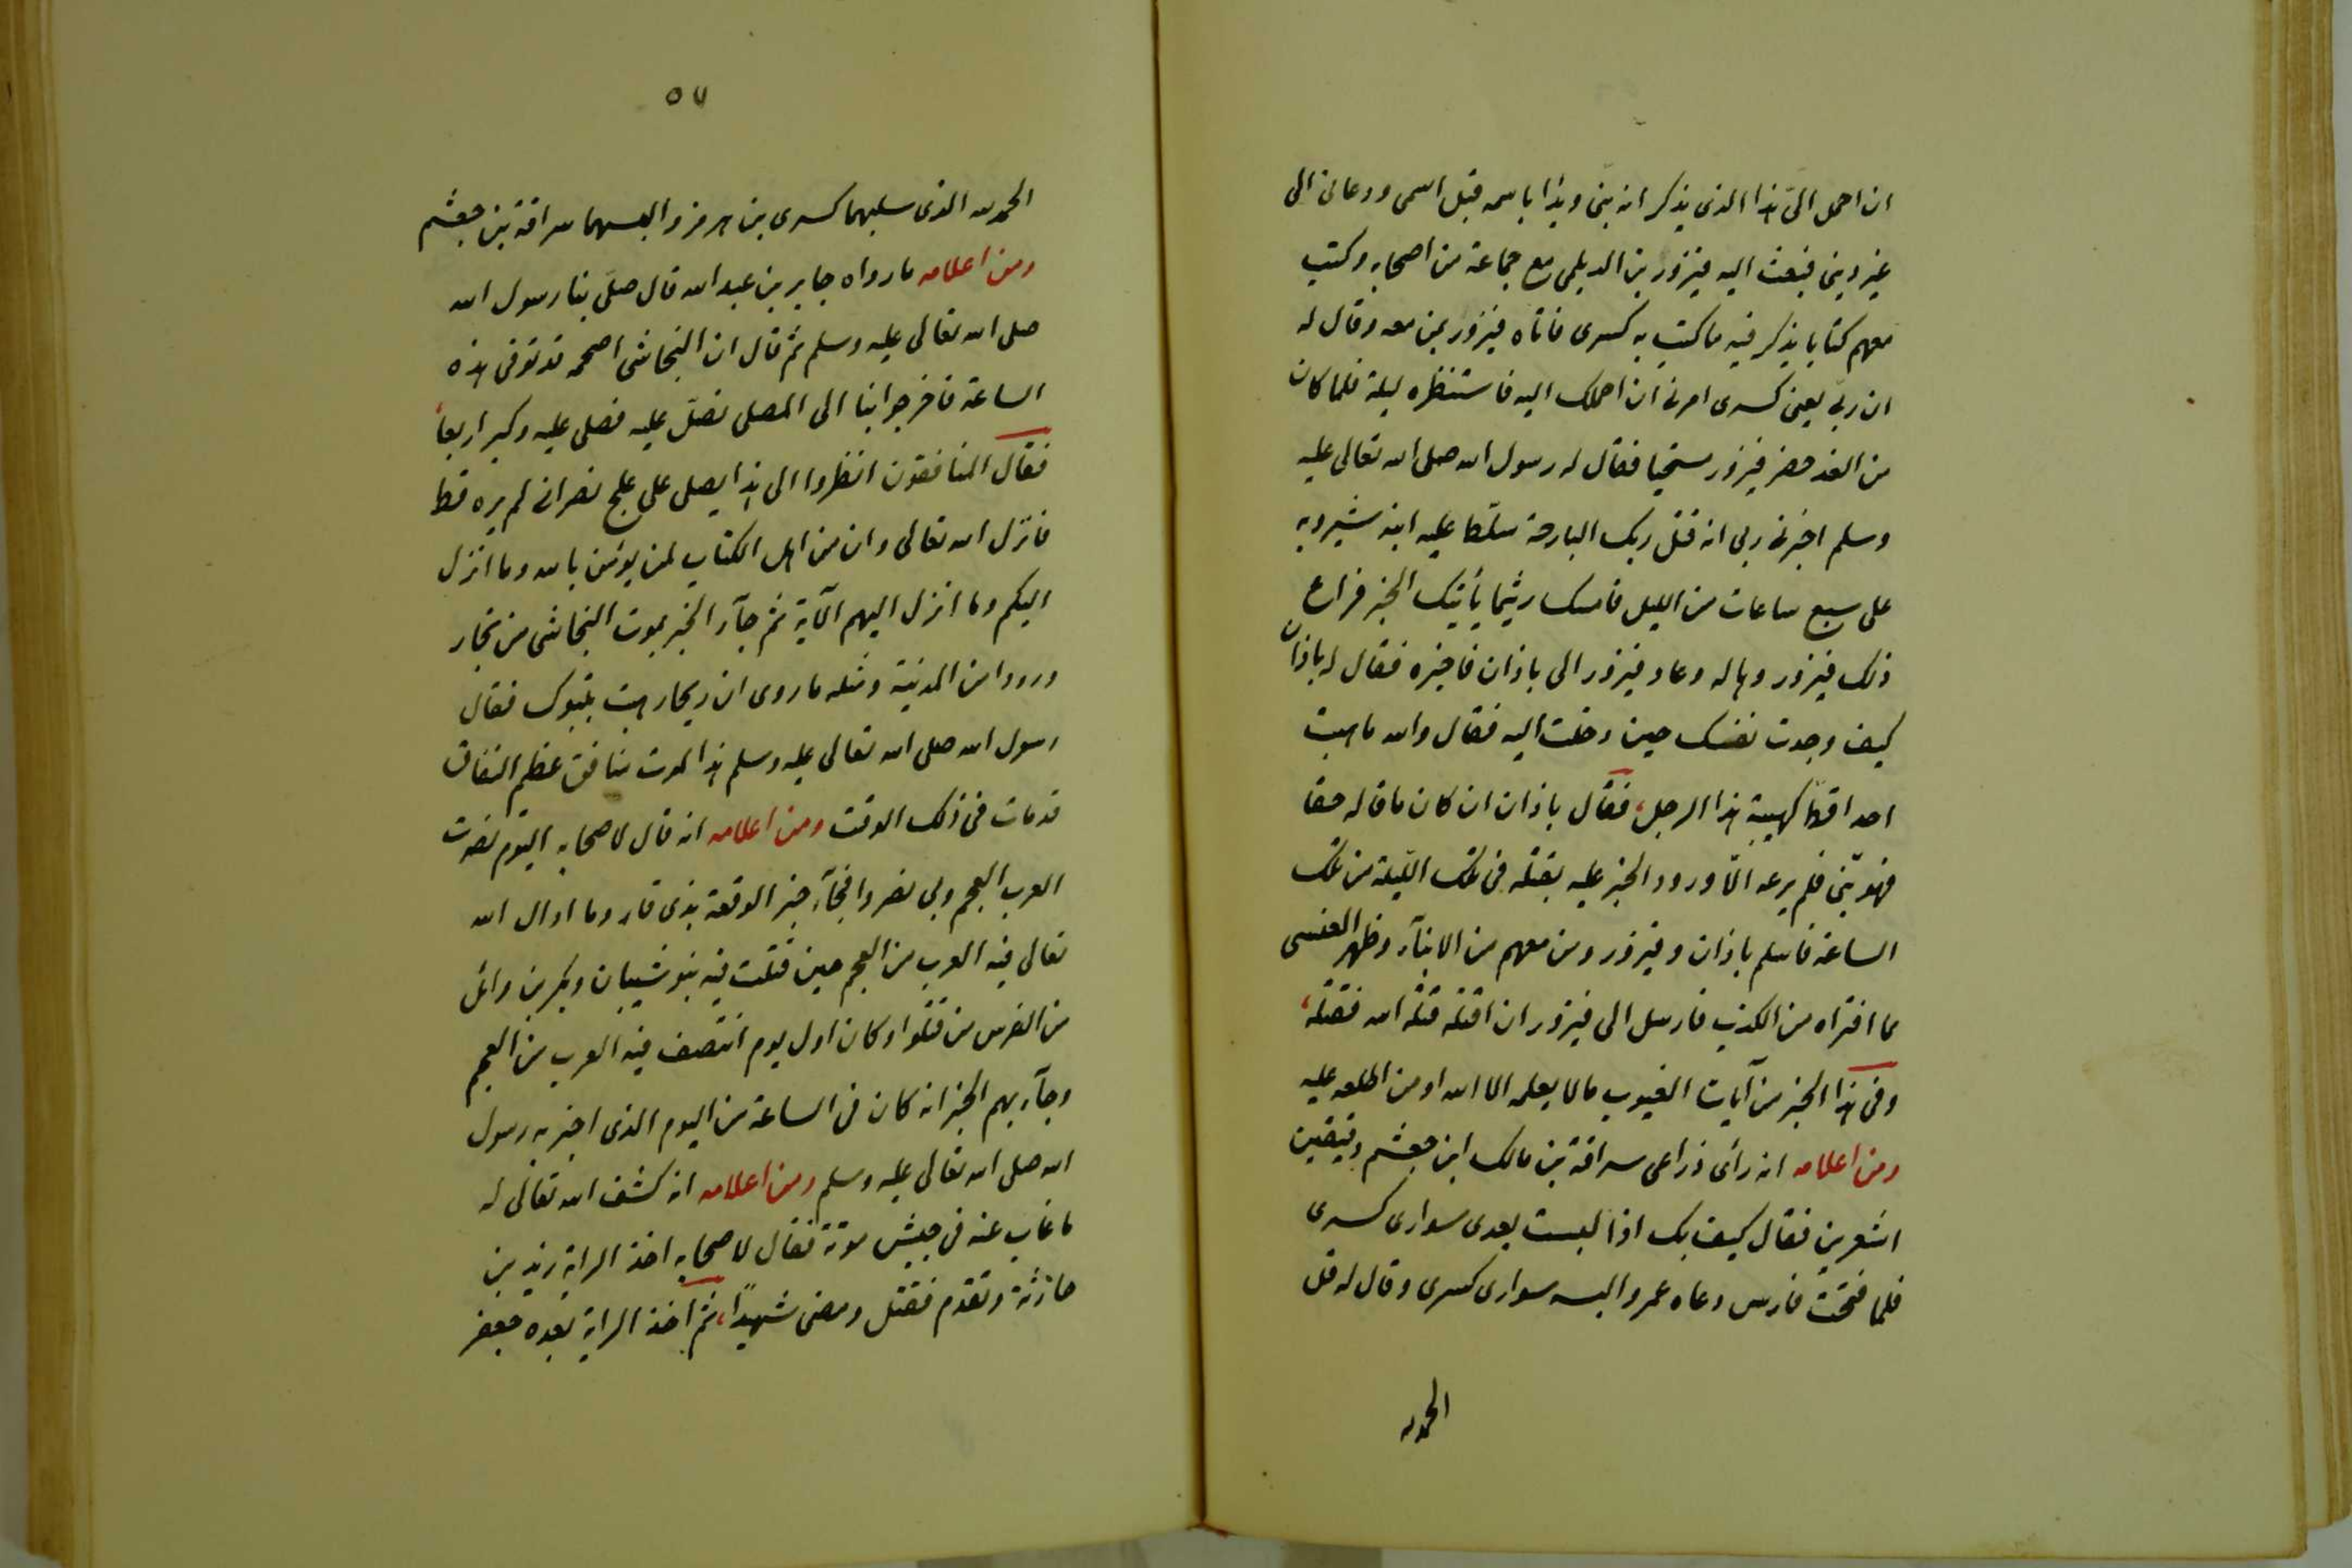 ان احمل الىّ هذا الذى يذكر انه نبى وبدأ باسمه قبل اسمى ودعانى الى
غير دينى فبعث اليه فيزور بن الديلمى مع جماعة من اصحابه وكتب
معهم كتابا يذكر فيه ما كتب به كسرى فاتاه فيزور بمن معه وقال له
ان ربّى يعنى كسرى امرنى ان احملك اليه فاستنظره ليلة فلما كان
من الغد حضر فيزور مستحيا فقال له رسول الله صلى الله تعالى عليه
وسلم اخبرنى ربى انه قتل ربك البارحة سلّط عليه ابنه شيرويه
على سبع ساعات من الليل فامسك ريثما يأتيك الخبر فراع
ذلك فيزور وهاله وعاد فيزور الى باذان فاخبره فقال له باذان
كيف وجدت نفسك حين دخلت اليه فقال والله ما هبت
احدا قط كهيبة هذا الرجل، فقال باذان ان كان ما قاله حقا
فهو نبّى فلم يرعه الّا ورود الخبر عليه بقتله فى تلك الليلة من تلك
الساعة فاسلم باذان وفيزور ومن معهم من الابنآء وظهر العنسى
بما افتراه من الكذب فارسل الى فيزور ان اقتله قتله الله فقتله،
وفى هذا الخبر من آيات الغيوب ما لا يعلمه الا الله او من اطلعه عليه
ومن اعلامه انه رأى ذراعى سراقة بن مالك ابن جعشم دقيقين
اشعرين فقال كيف بك اذا لبست بعدى سوارى كسرى
فلما فتحت فارس دعاه عمر والبسه سوارى كسرى وقال له قل
الحمد لله
٥٧
الحمد لله الذى سلبهما كسرى بن هرمز والبسهما سراقة بن جعشم
ومن اعلامه ما رواه جابر بن عبد الله قال صلّى بنا رسول الله
صلى الله تعالى عليه وسلم ثم قال ان النجاشى اصحمه قد توفى هذه
الساعة فاخرجوا بنا الى المصلى نصلّ عليه فصلى عليه وكبر اربعاً
فقال المنافقون انظروا الى هذا يصلى على علج نصرانى لم يره قط
فانزل الله تعالى وان من اهل الكتاب لمن يؤمن بالله وما انزل
اليكم وما انزل اليهم الآية ثم جآء الخبر بموت النجاشى من تجار
وردوا من المدينة ومثله ما روى ان ريحا هبت بتبوك فقال
رسول الله صلى الله تعالى عليه وسلم هذا لموت منافق عظيم النفاق
قد مات فى ذلك الوقت ومن اعلامه انه قال لاصحابه اليوم نصرت
العرب العجم وبى نصروا فجآء خبر الوقعة بذى قار وما ادال الله
تعالى فيه العرب من العجم حين قتلت فيه بنو شيبان وبكر بن وائل
من الفرس من قتلوا وكان اول يوم انتصف فيه العرب من العجم
وجآء بهم الخبر انه كان فى الساعة من اليوم الذى اخبر به رسول
الله صلى الله تعالى عليه وسلم ومن اعلامه انه كشف الله تعالى له
ما غاب عنه فى جيش موتة فقال لاصحابه اخذ الراية زيد بن
حارثة وتقدم فقتل ومضى شهيدًا، ثم اخذ الراية بعده جعفر